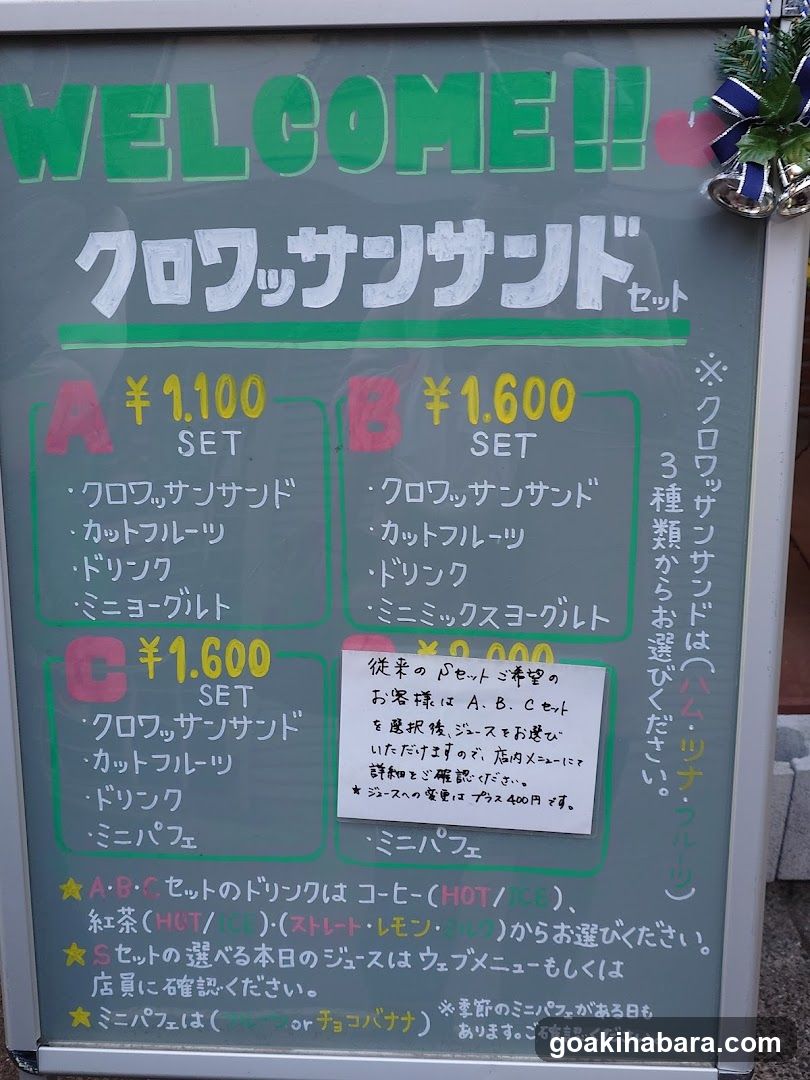 WELCOME!!
クロワッサンサンドセット
A ¥1.100
SET
・クロワッサンサンド
・カットフルーツ
・ドリンク
・ミニヨーグルト
B ¥1.600
SET
・クロワッサンサンド
・カットフルーツ
・ドリンク
・ミニミックスヨーグルト
※クロワッサンサンドは(ハム・ツナ・フルーツ)
3種類からお選びください。
C ¥1.600
SET
・クロワッサンサンド
・カットフルーツ
・ドリンク
・ミニパフェ
従来のSセットご希望の
お客様は A、B、Cセット
を選択後、ジュースをお選び
いただけますので、店内メニューにて
詳細をご確認ください。
★ ジュースへの変更は プラス400円です。
・ミニパフェ
★A・B・Cセットのドリンクは コーヒー(HOT/ICE)、
紅茶(HOT/ICE)・(ストレート・レモン・ミルク)からお選びください。
★Sセットの選べる本日のジュースはウェブメニューもしくは
店員に確認ください。
★ミニパフェは(フルーツorチョコバナナ)
※季節のミニパフェがある日も
あります。ご確認ください
goakihabara.com